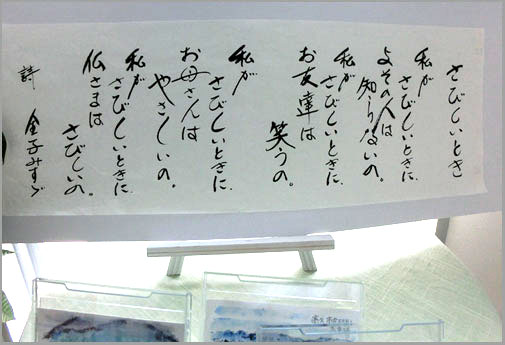 さびしいとき
私が
さびしいときに、
よその人は
知らないの。
私が
さびしいときに、
お友達は
笑うの。
私が
さびしいときに、
お母さんは
やさしいの。
私が
さびしいときに、
仏さまは
さびしいの。
詩 金子みすゞ